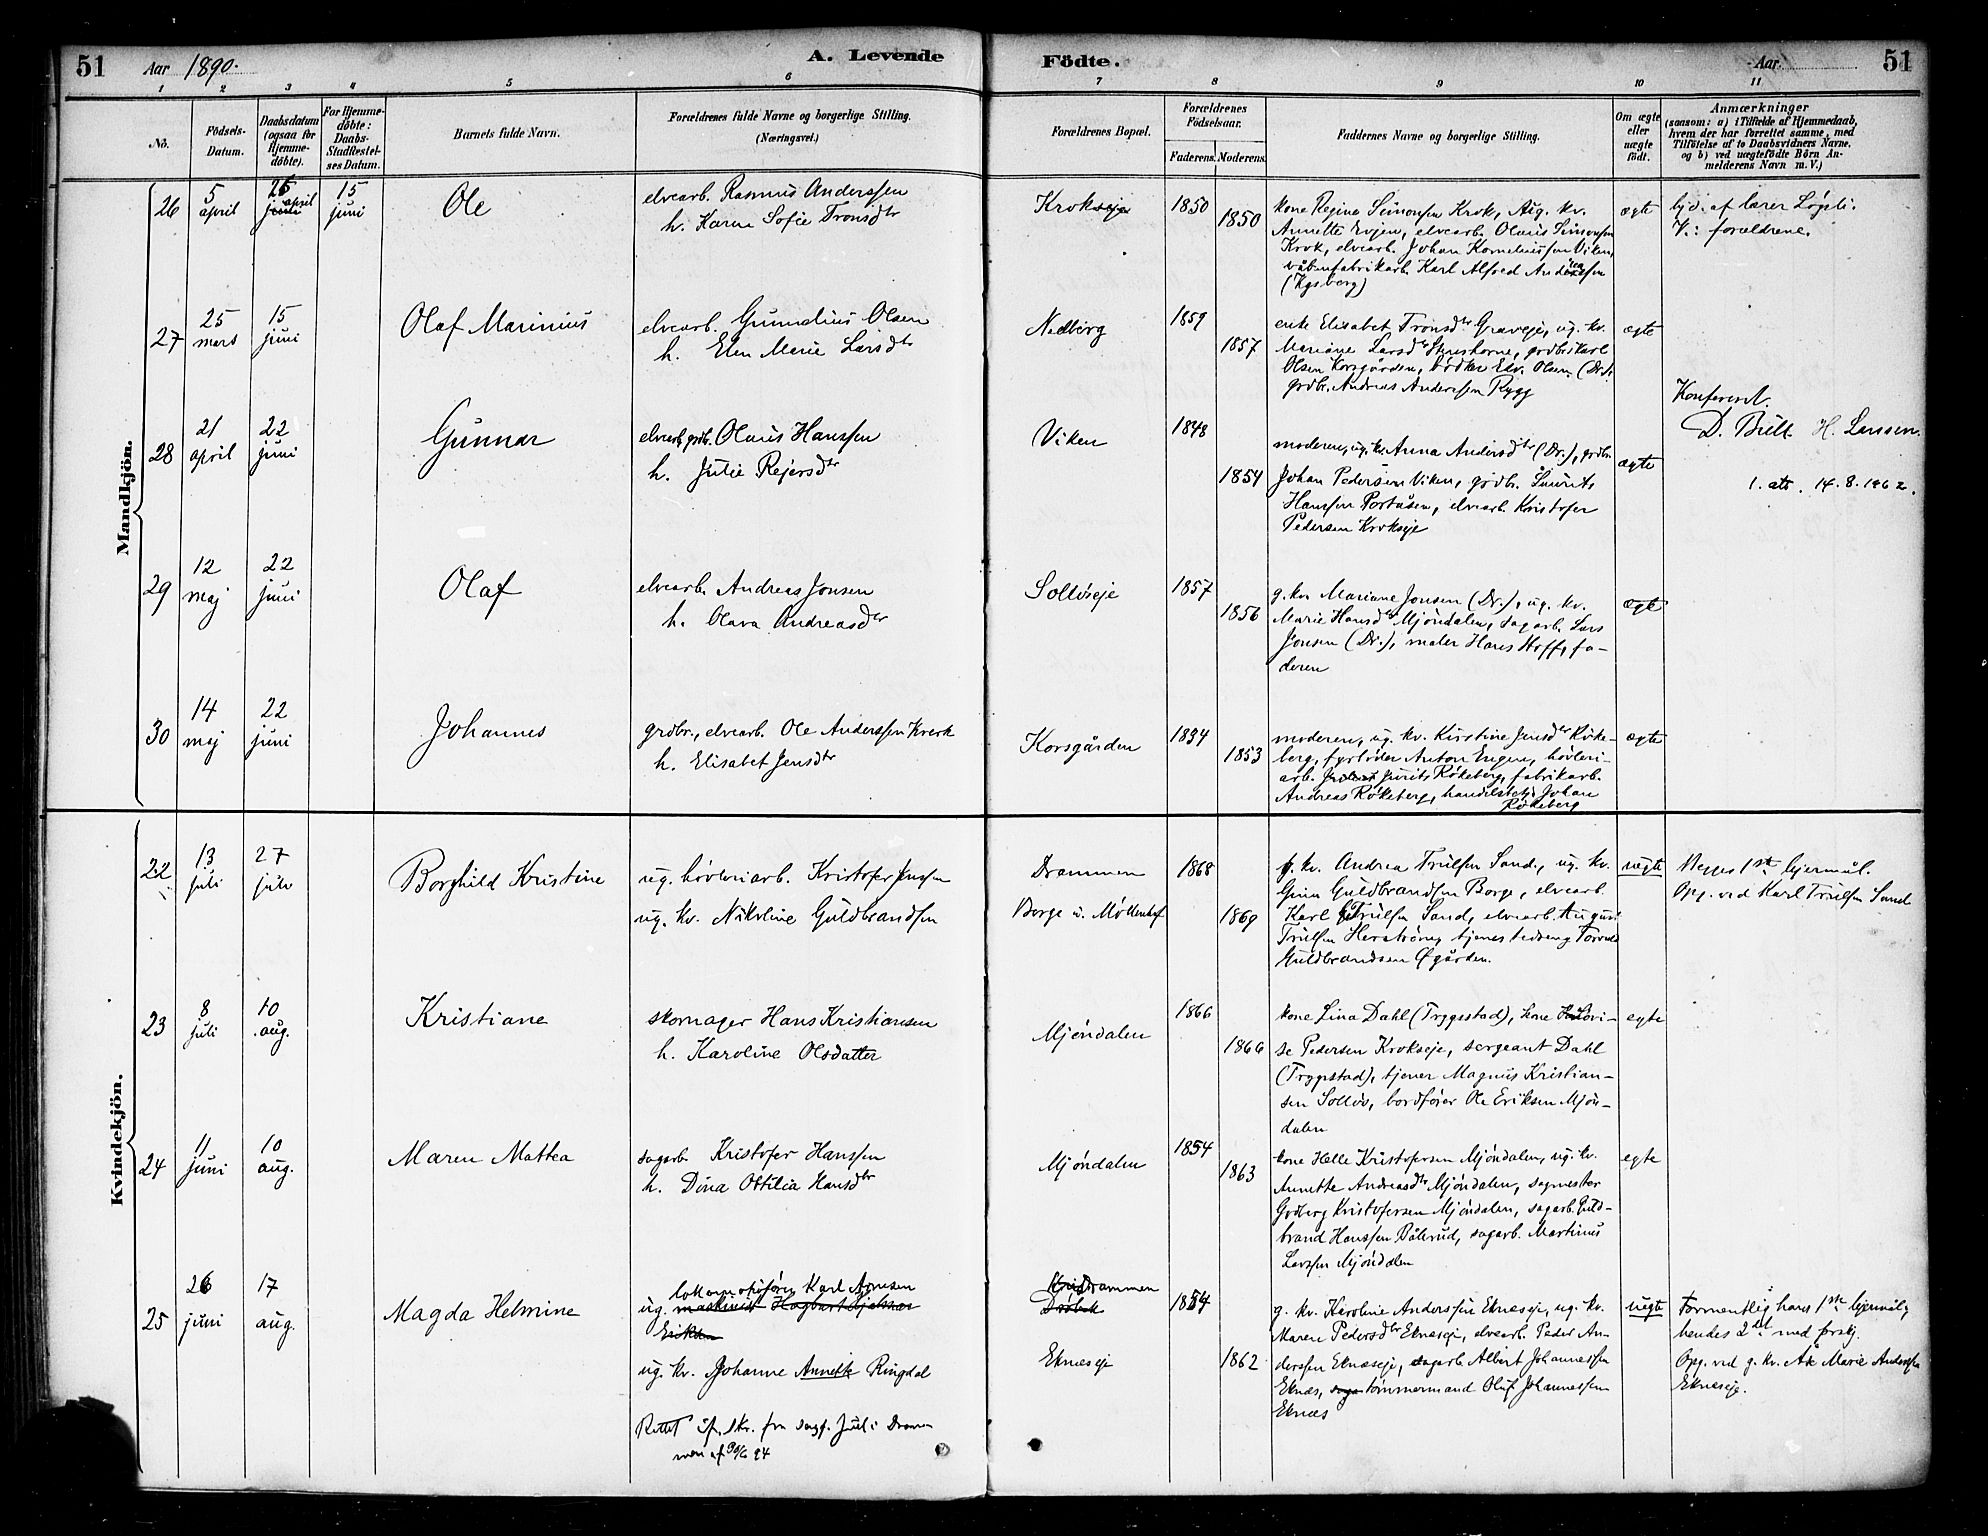 51 Aar 1890. A. Levende Födte. Aar. 51
1 2 3 4 5 6 7 8 9 10 11
No.
Födsels-
Datum.
Daabsdatum
(ogsaa for
Hjemme-
döbte).
For Hjemme-
döbte:
Daabs-
Stadfæstel-
ses Datum.
Barnets fulde Navn.
Forældrenes fulde Navne og borgerlige Stilling.
(Næringsvei.)
Forældrenes Bopæl.
Forældrenes
Födselsaar.
Faderens. Moderens.
Faddernes Navne og borgerlige Stilling.
Om ægte
eller
uægte
født.
Anmærkninger
(saasom: a) i Tilfælde af Hjemmedaab,
hvem der har forrettet samme, med
Tilföielse af to Daabsvidners Navne.
og b) ved uægtefödte Börn An-
melderens Navn m. V.)
Mandkjön.
26
5
april
26
april
juni
15
juni
Ole
elvearb. Rasmus Anderssen
h. Karen Sofie Tronsdtr
Krokseje
1850
1850
kone Regine Simonsen Krok, Aug. kv.
Annette Evjen, elvearb. Olaus Simonsen
Krok, elvearb. Johan Korneliussen Viken,
våbenfabrikarb. Karl Alfred Andreasen
(Kgsberg)
ægte
hjd. af lærer Løpsli.
V.: forældrene.
27
25
mars
15
juni
Olaf Marinius
elvearb. Gunnelius Olsen
h. Elen Marie Larsdtr
Nedberg
1859
1857
enke Elisabet Tronsdtr Graveje, ug. kv.
Mariane Larsdtr Stenshorne, grdbr. Karl
Olsen Korsgården, bødker Edv. Olsen (Dr.)
grdbr. Andreas Anderssen Rygg
ægte
28
21
april
22
juni
Gunnar
elvearb. grdb. Olaus Hanssen
h. Julie Rejersdtr
Viken
1848
1854
moderen, ug. kv. Anna Andersdtr (Dr.), grdbr.
Johan Pedersen Viken, grdbr. Laurits
Hanssen Portåsen, elvearb. Kristofer
Pedersen Krokseje
ægte
Konfereret.
D. Bull H. Larssen.
1. att. 14.8.1962.
29
12
maj
22
juni
Olaf
elvearb. Andreas Jonsen
h. Olava Andreasdtr
Solløseje
1857
1856
g. kv. Mariane Jonsen (Dr.), ug. kv.
Marie Hansdtr Mjöndalen, sagarb. Lars
Jonsen (Dr.), maler Hans Hoff, fa-
deren
ægte
30
14
maj
22
juni
Johannes
grdbr., elvearb. Ole Anderssen Kverk
h. Elisabet Jensdtr
Korsgården
1834
1853
moderen, ug. kv. Kirstine Jensdtr Røke-
berg, fyrbøder Anton Engen, høvleri-
arb. Jurits Røkeberg, fabrikarb.
Andreas Røkeberg, handelsbetj. Johan
Røkeberg
ægte
Kvindekjön.
22
13
juli
27
juli
Borghild Kristine
ug. høvleriarb. Kristofer Jensen
ug. kv. Nikoline Guldbrandsen
Drammen
Borge u. Møllenhof
1868
1869
g. kv. Andrea Trulsen Sand, ug. kv.
Gina Guldbrandsen Borge, elvearb.
Karl Trulsen Sand, elvearb. August
Trulsen Herstrøm, tjenestedreng Torvald
Guldbrandsen Øgården.
uegte
Begges 1ste lejermål.
Opg. ved Karl Trulsen Sand
23
8
juli
10
aug.
Kristiane
skomager Hans Kristiansen
h. Karoline Olsdatter
Mjöndalen
1866
1866
kone Lina Dahl (Trygstad), kone Lovi-
se Pedersen Krokseje, sergeant Dahl
(Trygstad), tjener Magnus Kristian-
sen Solløs, bordfører Ole Eriksen Mjön-
dalen
egte
24
11
juni
10
aug.
Maren Mattea
sagarb. Kristofer Hanssen
h. Dina Ottilia Hansdtr
Mjöndalen
1854
1863
kone Helle Kristofersen Mjöndalen, ug. kv.
Annette Andreasdtr Mjöndalen, sagmester
Godberg Kristofersen Mjöndalen, sagarb. Guld-
brand Hanssen Båserud, sagarb. Martinus
Larssen Mjöndalen
egte
25
26
juni
17
aug.
Magda Helmine
lokomotivfører Karl Arnesen
ug. maskinist Hagbart Hjelmar
Eriksen
ug. kv. Johanne Annette Ringdal
Rettet if. skr. fra sogp. Juul i Dram-
men af 30/6 94
Drammen
Drøbak
Eknæseje
1854
1862
g. kv. Karoline Anderssen Eknæseje, ug. kv.
Maren Pedersdtr Eknæseje, elvearb. Peder An-
derssen Eknæseje, sagarb. Albert Johannessen
Eknæs, tømmermand Oluf Johannessen
Eknæs
uegte
Formentlig hans 1ste lejermål,
hendes 2det med forskj.
Opg. ved g. kv. Marie Anderssen
Eknæseje.